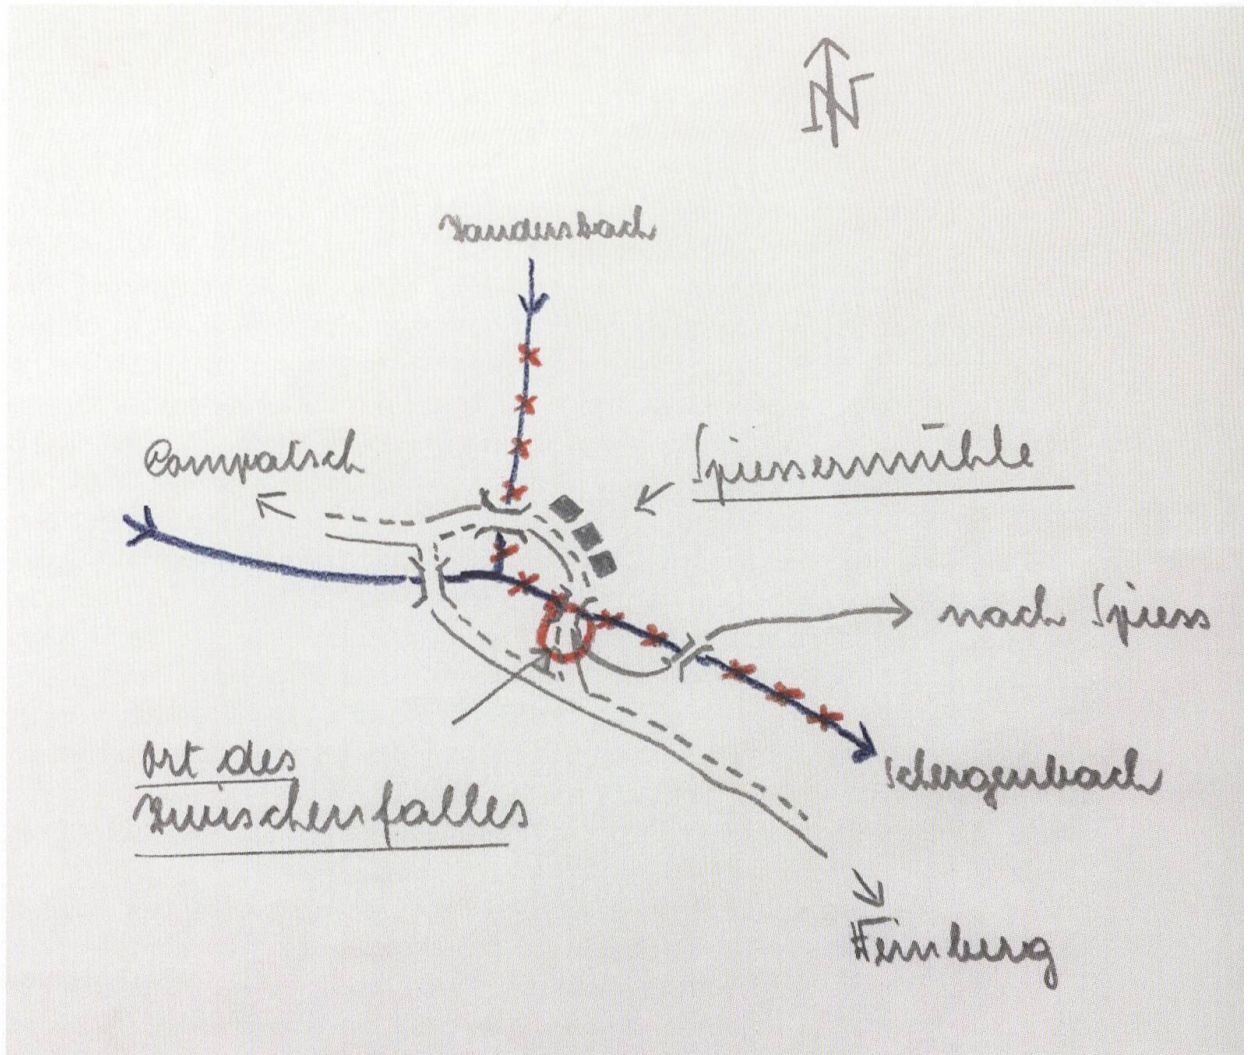 N
Zandersbach
Compatsch
Spiessermühle
nach Spiess
Ort des
Zwischenfalles
Schergenbach